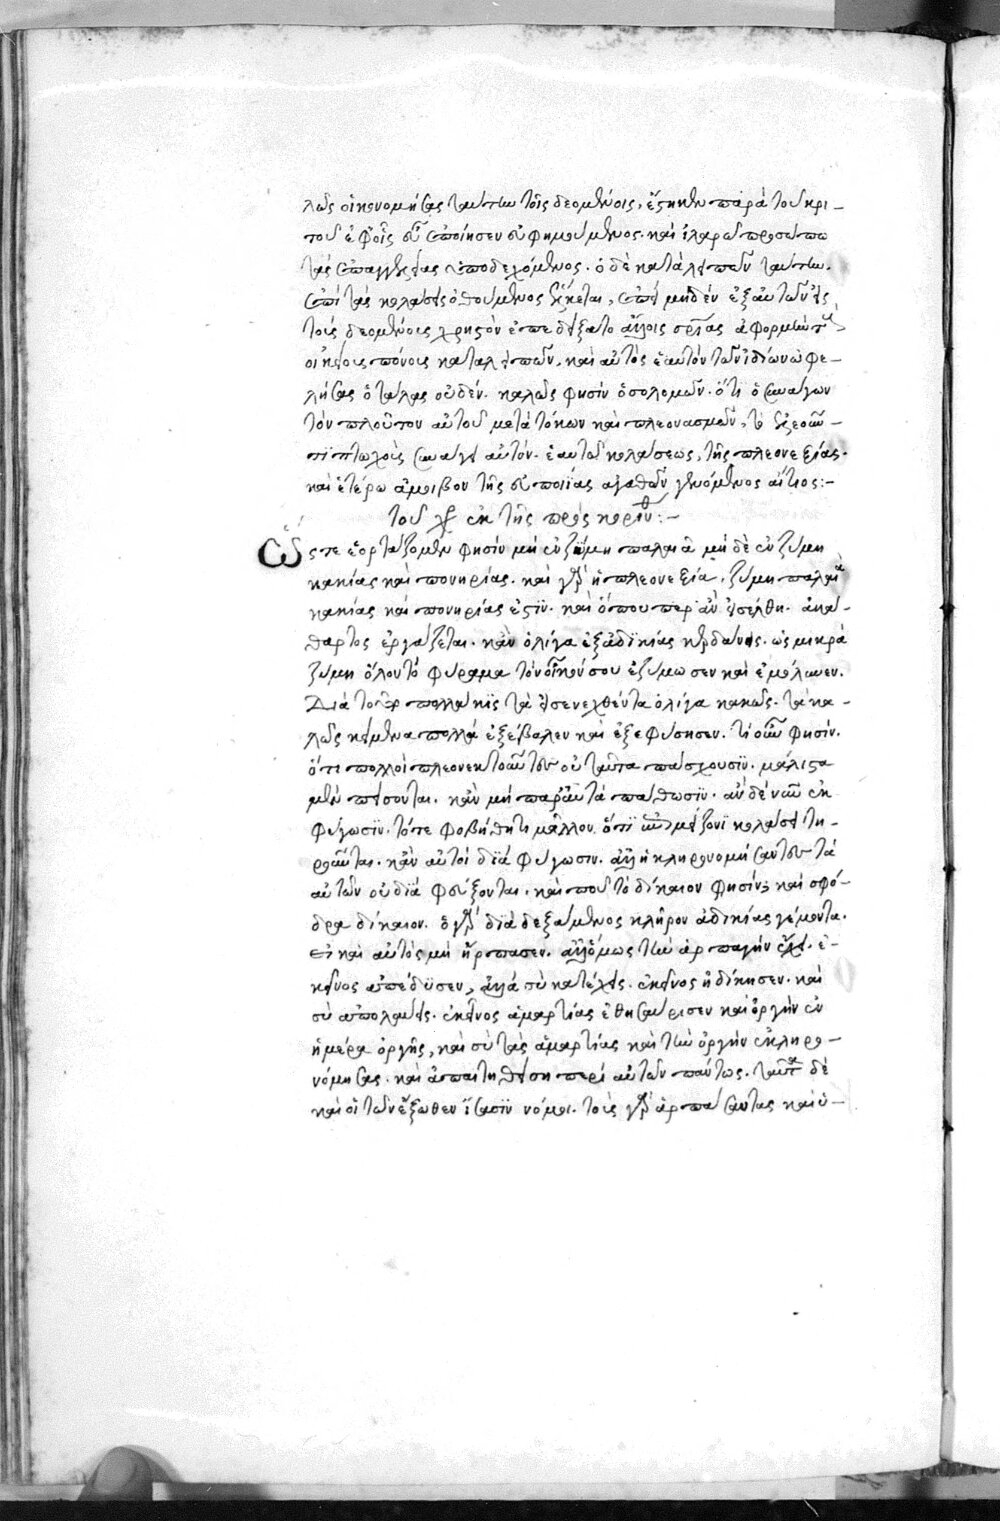 λῶς οἰκονομήσας ταύτην τοῖς δεομένοις, ἕστηκεν παρὰ τοῦ κρι-
τοῦ ἐφ' οἷς εὖ ἐποίησεν εὐφημούμενος. καὶ ἱλαρῶ προσώπω
τὰς ἐπαγγελίας ὑποδεχόμενος. ὁ δὲ καταλειπὼν ταύτην.
ἐπὶ τὰς κολάσεις ὀθούμενος ἕλκεται, ἐπεὶ μηδὲν ἐξ αὐτῶν εἰς
τοὺς δεομένους χρηστὸν ἐπεδείξατο ἄλλοις ἀφορμὴν
οἰκείοις πόνοις καταλειπὼν, καὶ αὐτὸς ἑαυτὸν τῶν ἰδίων ὠφε-
λήσας ὁ τάλας οὐδέν. καλῶς φησὶν ὁ σολομῶν. ὅτι ὁ συνάγων
τὸν πλοῦτον αὐτοῦ μετὰ τόκων καὶ πλεονασμῶν, τῶ ἐλεοῦν-
τι πτωχοὺς συνάγει αὐτόν. ἑαυτῶ κολάσεως, τῆς πλεονεξίας.
καὶ ἑτέρω ἀμοιβῶν τῆς εὐποιίας ἀγαθῶν γενόμενος αἴτιος:-
τοῦ χρ ἐκ τῆς πρὸς κορινθ:-
Ὥστε ἑορτάζομεν φησὶν μὴ ἐν ζύμη παλαιᾶ μὴ δὲ ἐν ζύμη
κακίας καὶ πονηρίας. καὶ γὰρ ἡ πλεονεξία, ζύμη παλαιὰ
κακίας καὶ πονηρίας ἐστὶν. καὶ ὅπου περ ἂν εἰσέλθη. ἀκά-
θαρτος ἐργάζεται. κἂν ὀλίγα ἐξ ἀδικίας κερδάνης. ὡς μικρὰ
ζύμη ὅλον τὸ φύραμα τὸν οἶκόν σου ἐζύμωσεν καὶ ἐμόλυνεν.
Διὰ τοῦτο πολλάκις τὰ εἰσενεχθέντα ὀλίγα κακῶς. τὰ κα-
λῶς κείμενα πολλὰ ἐξέβαλεν καὶ ἐξεφύσησεν. τί οὖν φησίν.
ὅτι πολλοὶ πλεονεκτοῦντες οὐ ταῦτα πάσχουσιν. μάλιστα
μὲν πείσονται. κἂν μὴ παραυτὰ πάθωσιν. ἂν δὲ νῦν ἐκ
φύγωσιν. τότε φοβήθητι μᾶλλον ὅτι μείζονι κολάσει τη-
ροῦνται. κἂν αὐτοὶ διαφύγωσιν. ἀλλ' ἡ κληρονομήσαντες τὰ
αὐτῶν οὐ διαφεύξονται. καὶ ποῦ τὸ δίκαιον φησίν; καὶ σφό-
δρα δίκαιον. ὁ γὰρ διαδεξάμενος κλῆρον ἀδικίας γέμοντα.
εἰ καὶ αὐτὸς μὴ ἥρπασεν. ἀλλ' ὅμως τὴν ἁρπαγὴν ἔχει. ἐ-
κεῖνος ἀπέδυσεν, ἀλλὰ σὺ κατέχεις. ἐκεῖνος ἠδίκησεν. καὶ
σὺ ἀπολαύεις. ἐκεῖνος ἁμαρτίας ἐθησαύρισεν καὶ ὀργὴν ἐν
ἡμέρα ὀργῆς, καὶ σὺ τὰς ἁμαρτίας καὶ τὴν ὀργὴν ἐκληρο-
νόμησας. καὶ ἀπαιτηθήση περὶ αὐτῶν πάντως. ταῦτα δὲ
καὶ οἱ τῶν ἔξωθεν ἴσασιν νόμοι. τοὺς γὰρ ἁρπάσαντας καὶ ὑ-